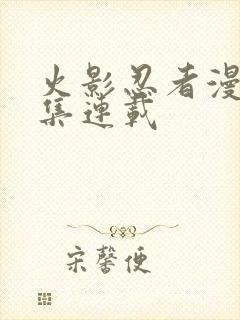 火影忍者漫
集連載
宋馨便